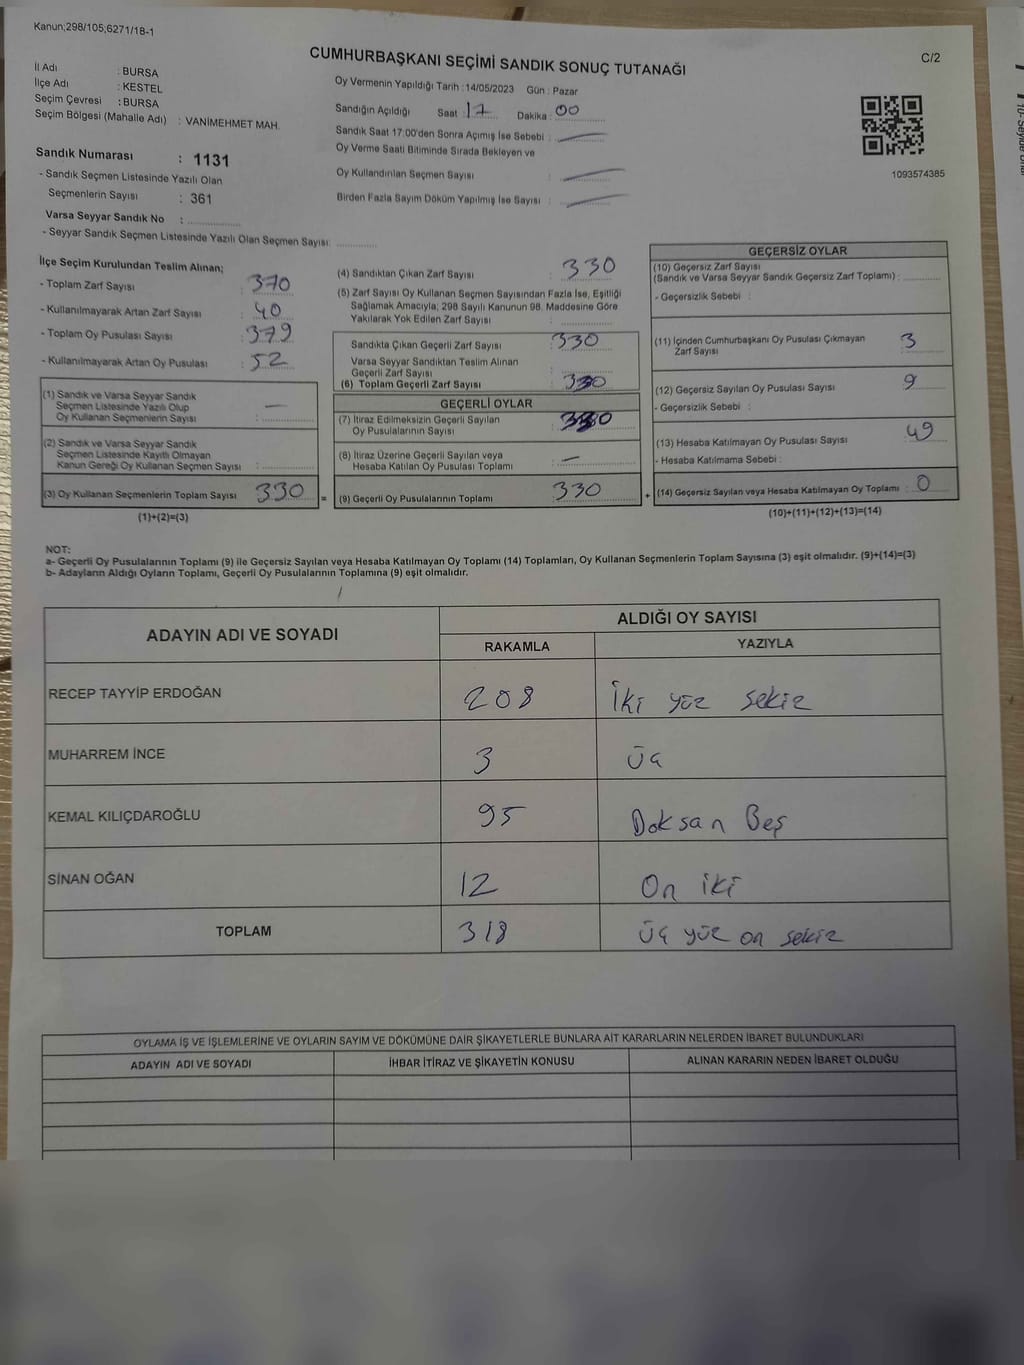 Kanun;298/105;6271/18-1
CUMHURBAŞKANI SEÇİMİ SANDIK SONUÇ TUTANAĞI
C/2
İl Adı : BURSA
İlçe Adı : KESTEL
Seçim Çevresi : BURSA
Seçim Bölgesi (Mahalle Adı) : VANİMEHMET MAH.
Sandık Numarası : 1131
- Sandık Seçmen Listesinde Yazılı Olan
Seçmenlerin Sayısı : 361
Varsa Seyyar Sandık No :
- Seyyar Sandık Seçmen Listesinde Yazılı Olan Seçmen Sayısı:
Oy Vermenin Yapıldığı Tarih : 14/05/2023 Gün : Pazar
Sandığın Açıldığı Saat : 17 Dakika : 00
Sandık Saat 17:00'den Sonra Açımış İse Sebebi :
Oy Verme Saati Bitiminde Sırada Bekleyen ve
Oy Kullandırılan Seçmen Sayısı :
Birden Fazla Sayım Döküm Yapılmış İse Sayısı :
1093574385
İlçe Seçim Kurulundan Teslim Alınan;
- Toplam Zarf Sayısı : 370
- Kullanılmayarak Artan Zarf Sayısı : 40
- Toplam Oy Pusulası Sayısı : 379
- Kullanılmayarak Artan Oy Pusulası : 52
(1) Sandık ve Varsa Seyyar Sandık
Seçmen Listesinde Yazılı Olup
Oy Kullanan Seçmenlerin Sayısı : —
(2) Sandık ve Varsa Seyyar Sandık
Seçmen Listesinde Kayıtlı Olmayan
Kanun Gereği Oy Kullanan Seçmen Sayısı :
(3) Oy Kullanan Seçmenlerin Toplam Sayısı 330 =
(1)+(2)=(3)
(4) Sandıktan Çıkan Zarf Sayısı : 330
(5) Zarf Sayısı Oy Kullanan Seçmen Sayısından Fazla İse, Eşitliği
Sağlamak Amacıyla; 298 Sayılı Kanunun 98. Maddesine Göre
Yakılarak Yok Edilen Zarf Sayısı :
Sandıkta Çıkan Geçerli Zarf Sayısı : 330
Varsa Seyyar Sandıktan Teslim Alınan
Geçerli Zarf Sayısı :
(6) Toplam Geçerli Zarf Sayısı : 330
GEÇERLİ OYLAR
(7) İtiraz Edilmeksizin Geçerli Sayılan
Oy Pusulalarının Sayısı : 330
(8) İtiraz Üzerine Geçerli Sayılan veya
Hesaba Katılan Oy Pusulası Toplamı : —
(9) Geçerli Oy Pusulalarının Toplamı : 330 +
GEÇERSİZ OYLAR
(10) Geçersiz Zarf Sayısı
(Sandık ve Varsa Seyyar Sandık Geçersiz Zarf Toplamı) :
- Geçersizlik Sebebi :
(11) İçinden Cumhurbaşkanı Oy Pusulası Çıkmayan
Zarf Sayısı : 3
(12) Geçersiz Sayılan Oy Pusulası Sayısı : 9
- Geçersizlik Sebebi :
(13) Hesaba Katılmayan Oy Pusulası Sayısı : 49
- Hesaba Katılmama Sebebi :
(14) Geçersiz Sayılan veya Hesaba Katılmayan Oy Toplamı : 0
(10)+(11)+(12)+(13)=(14)
NOT:
a- Geçerli Oy Pusulalarının Toplamı (9) ile Geçersiz Sayılan veya Hesaba Katılmayan Oy Toplamı (14) Toplamları, Oy Kullanan Seçmenlerin Toplam Sayısına (3) eşit olmalıdır. (9)+(14)=(3)
b- Adayların Aldığı Oyların Toplamı, Geçerli Oy Pusulalarının Toplamına (9) eşit olmalıdır.
ADAYIN ADI VE SOYADI
ALDIĞI OY SAYISI
RAKAMLA YAZIYLA
RECEP TAYYİP ERDOĞAN 208 İki yüz sekiz
MUHARREM İNCE 3 Üç
KEMAL KILIÇDAROĞLU 95 Doksan Beş
SİNAN OĞAN 12 On iki
TOPLAM 318 Üç yüz on sekiz
OYLAMA İŞ VE İŞLEMLERİNE VE OYLARIN SAYIM VE DÖKÜMÜNE DAİR ŞİKAYETLERLE BUNLARA AİT KARARLARIN NELERDEN İBARET BULUNDUKLARI
ADAYIN ADI VE SOYADI İHBAR İTİRAZ VE ŞİKAYETİN KONUSU ALINAN KARARIN NEDEN İBARET OLDUĞU